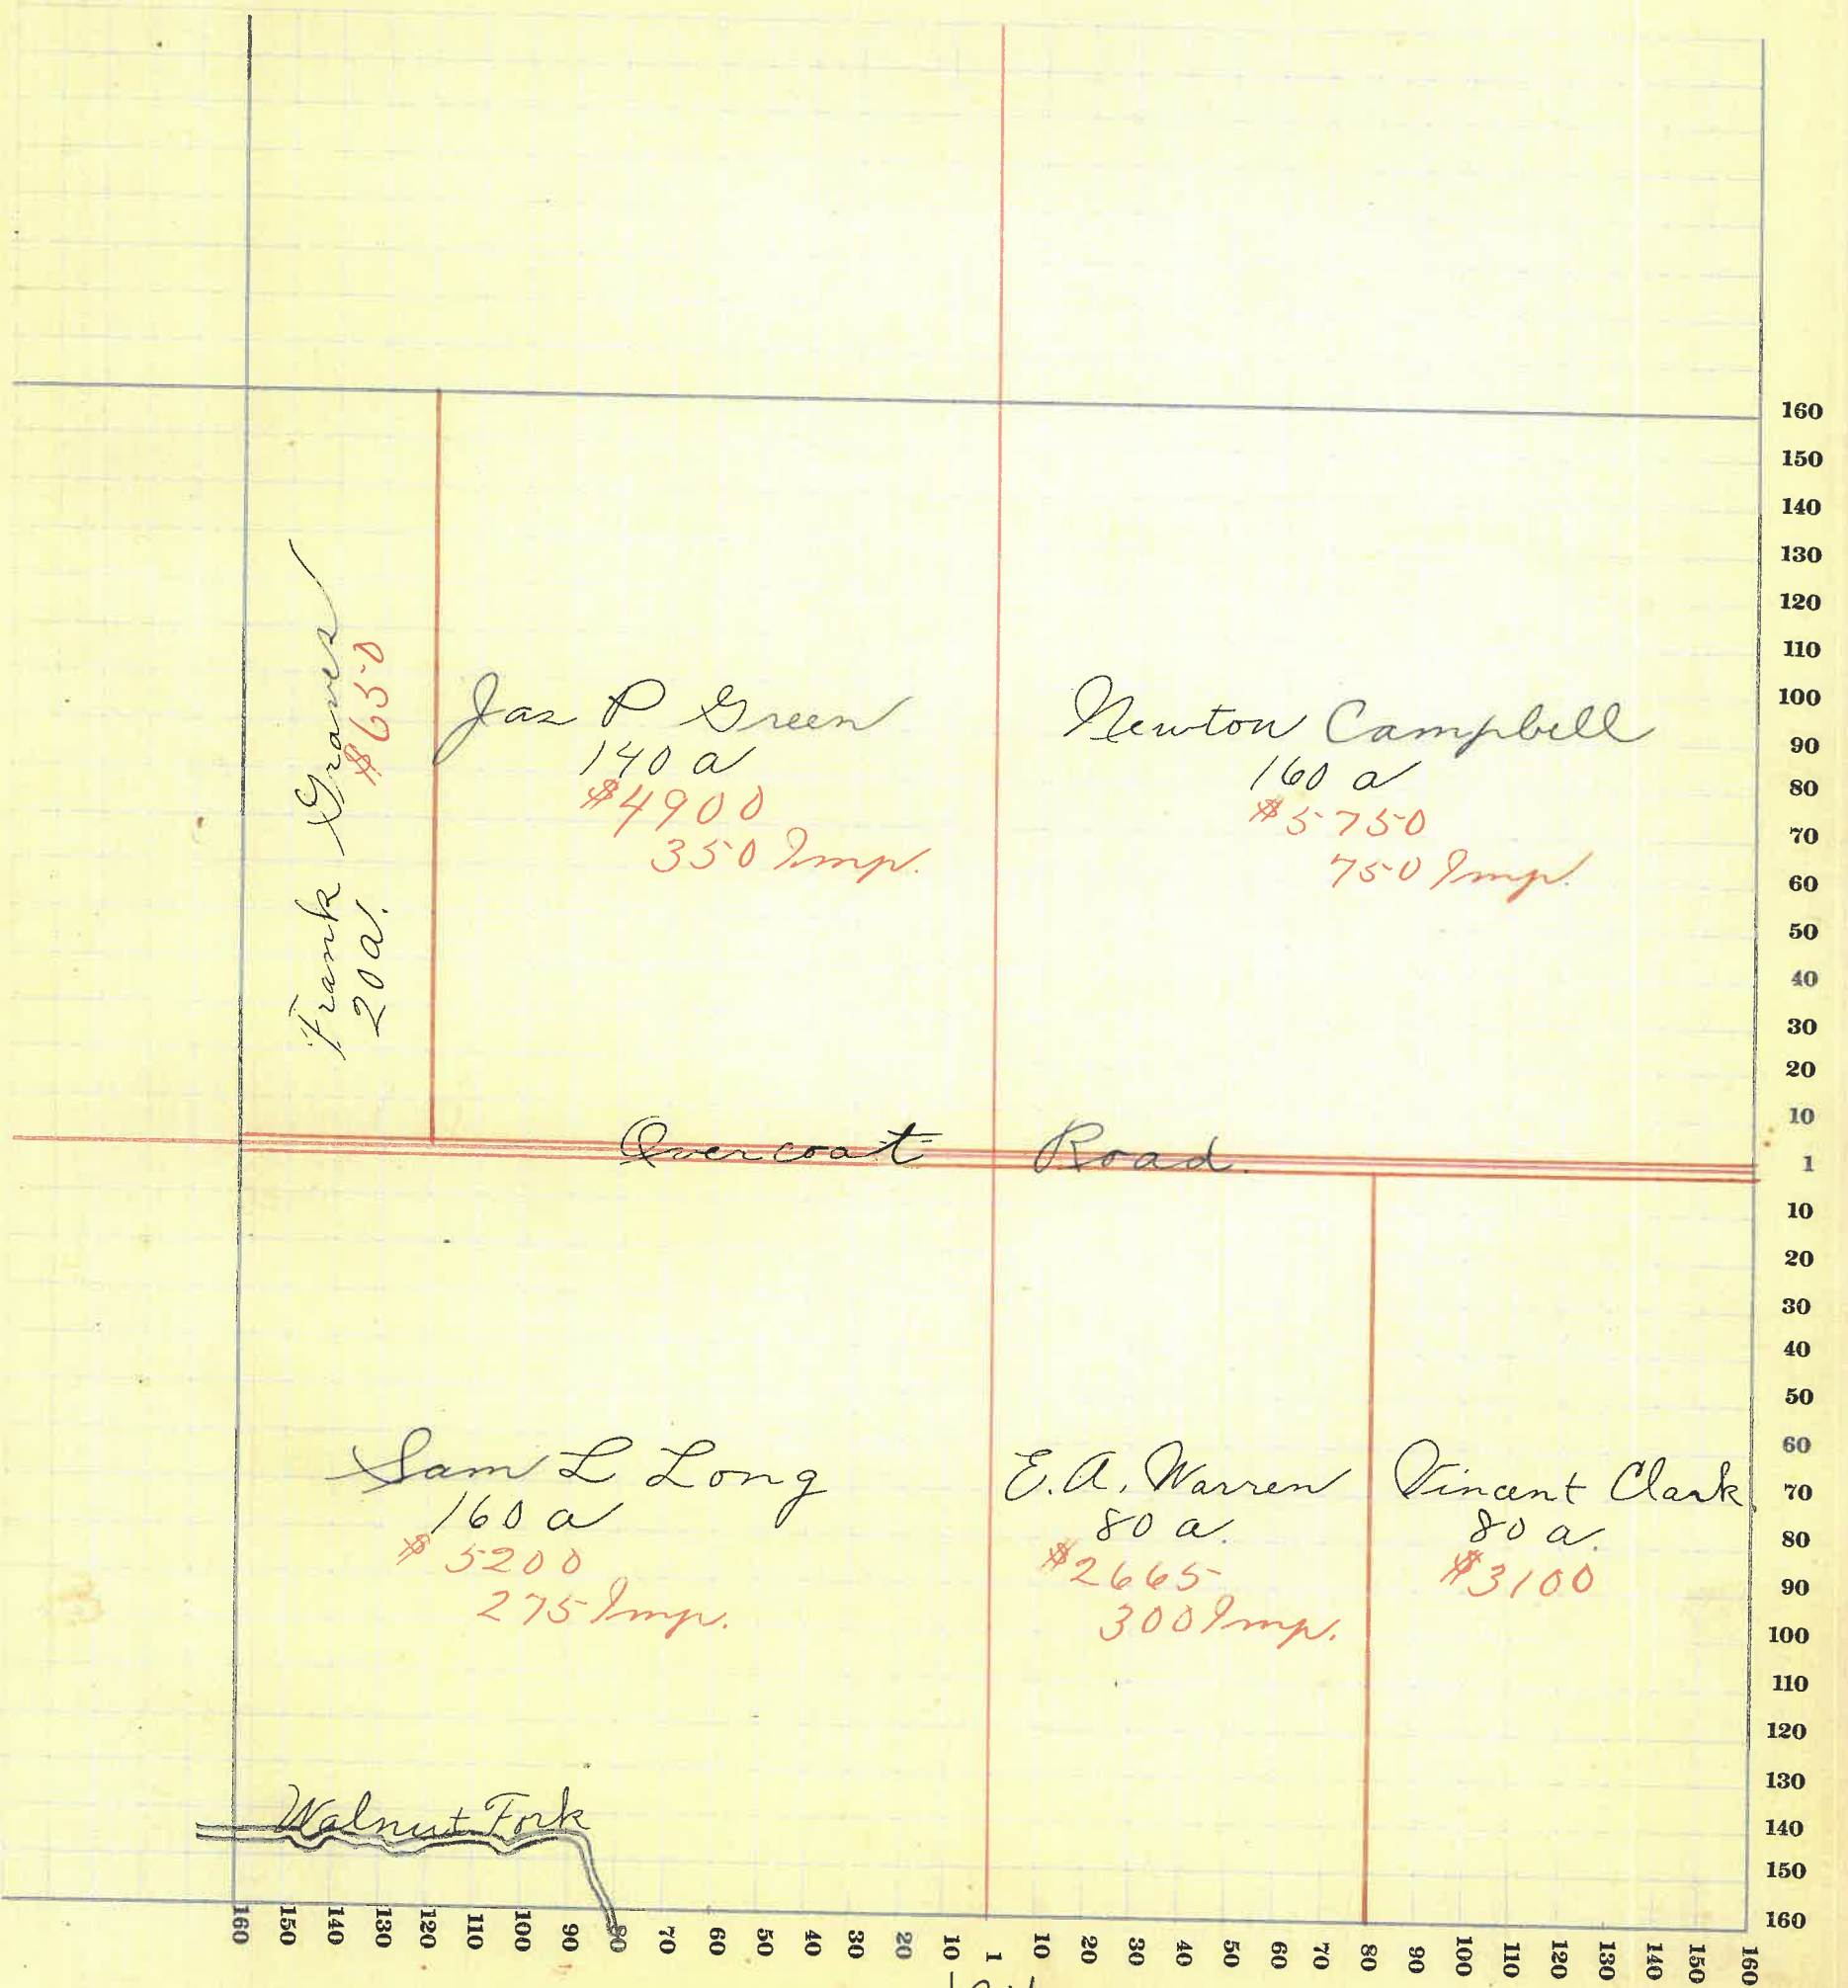 Frank Graves
$650
20 a.
Jas P Green
140 a
$4900
350 Imp.
Newton Campbell
160 a
$5750
750 Imp.
Overcoat Road.
Sam L Long
160 a
$5200
275 Imp.
E.A. Warren
80 a.
$2665
300 Imp.
Vincent Clark
80 a.
$3100
Walnut Fork
160
150
140
130
120
110
100
90
80
70
60
50
40
30
20
10
1
10
20
30
40
50
60
70
80
90
100
110
120
130
140
150
160
160 150 140 130 120 110 100 90 80 70 60 50 40 30 20 10 1 10 20 30 40 50 60 70 80 90 100 110 120 130 140 150 160